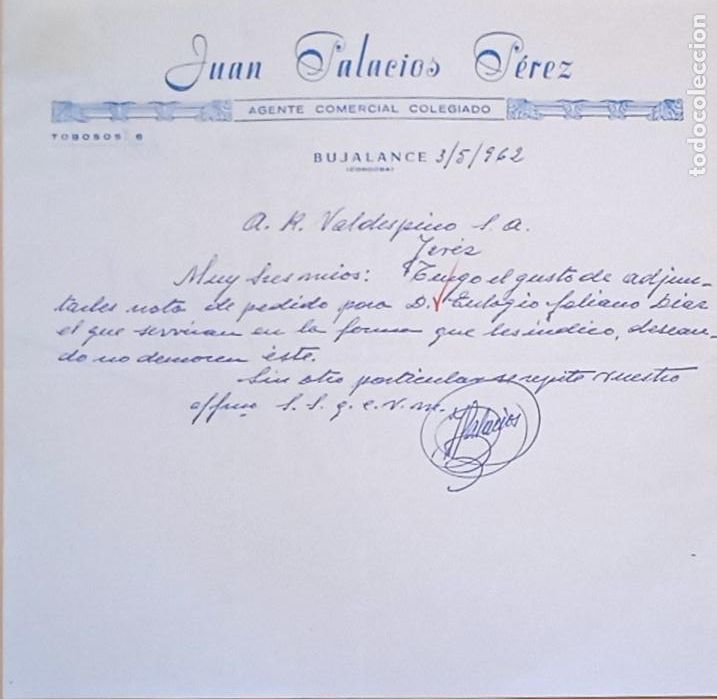 Juan Palacios Pérez
AGENTE COMERCIAL COLEGIADO
TOBOSOS 6
BUJALANCE 3/5/962
(CORDOBA)
A. R. Valdespino S. A.
Jeréz
Muy Sres mios: Tengo el gusto de adjun-
tarles nota de pedido para D. Eulogio Galiano Diaz
el que serviran en la forma que les indico, desean-
do no demoren éste.
Sin otro particular se repite vuestro
affmo S. S. q. e. v. m.
J Palacios
todocoleccion